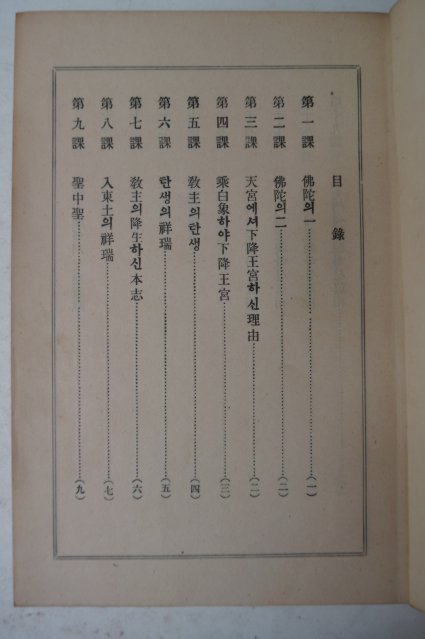 目錄
第一課 佛陀의一 ………(一)
第二課 佛陀의二 ………(二)
第三課 天宮에셔下降王宮하신理由 ………(二)
第四課 乘白象하야下降王宮 ………(三)
第五課 敎主의탄생 ………(四)
第六課 탄생의祥瑞 ………(五)
第七課 敎主의降生하신本志 ………(六)
第八課 入東土의祥瑞 ………(七)
第九課 聖中聖 ………(九)